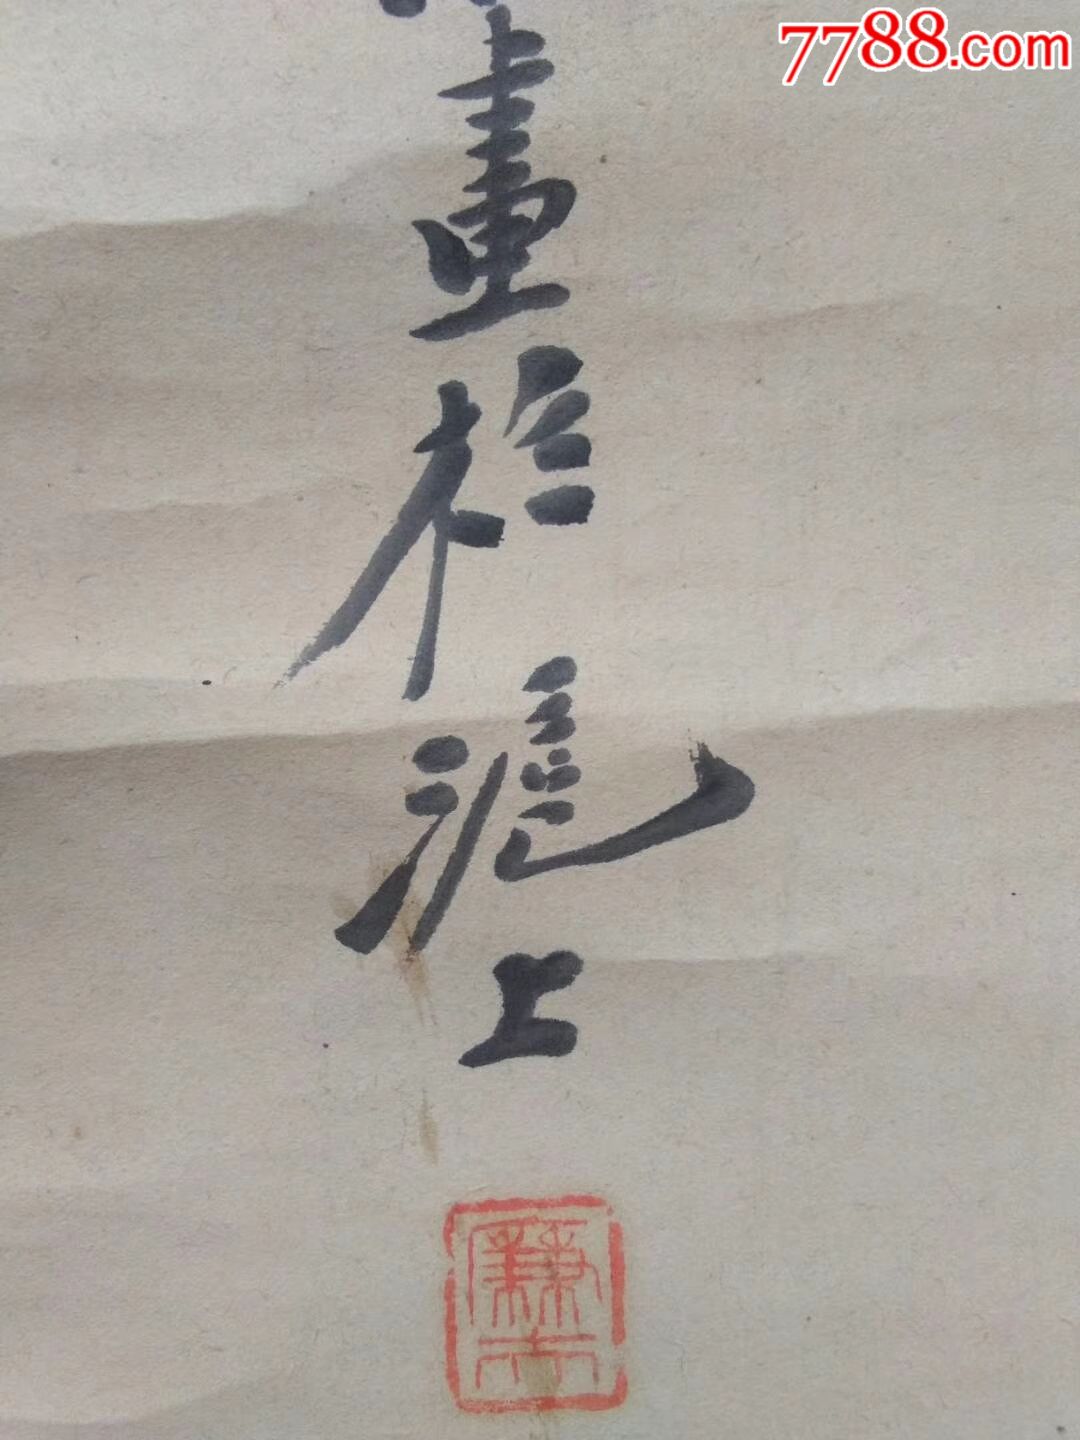 7788.com
畫於滬上